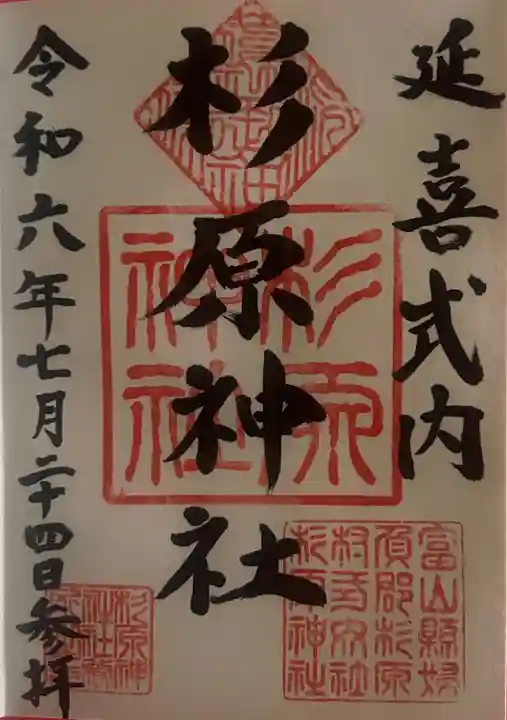 延喜式内
杉原神社
令和六年七月二十四日参拝
杉原
神社
富山縣婦
負郡杉原
村式内社
杉原神社